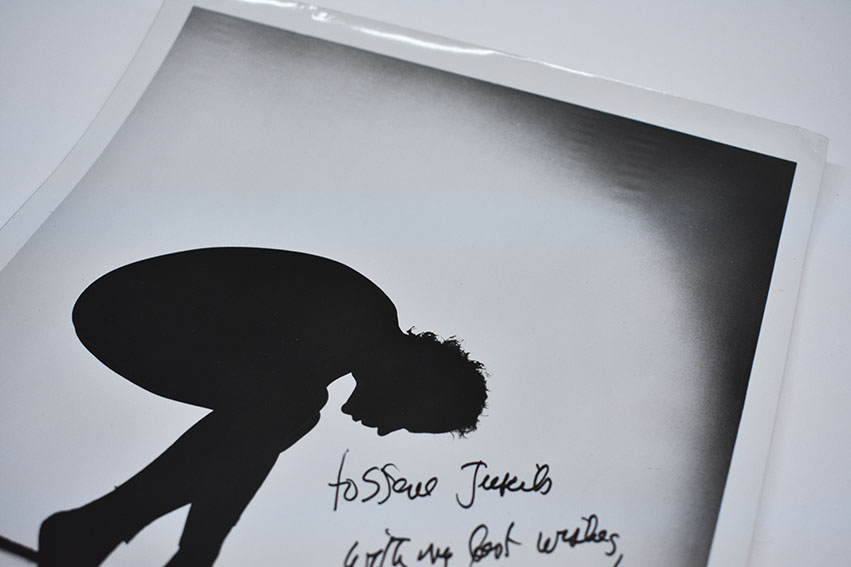 to Steve
with my best wishes,